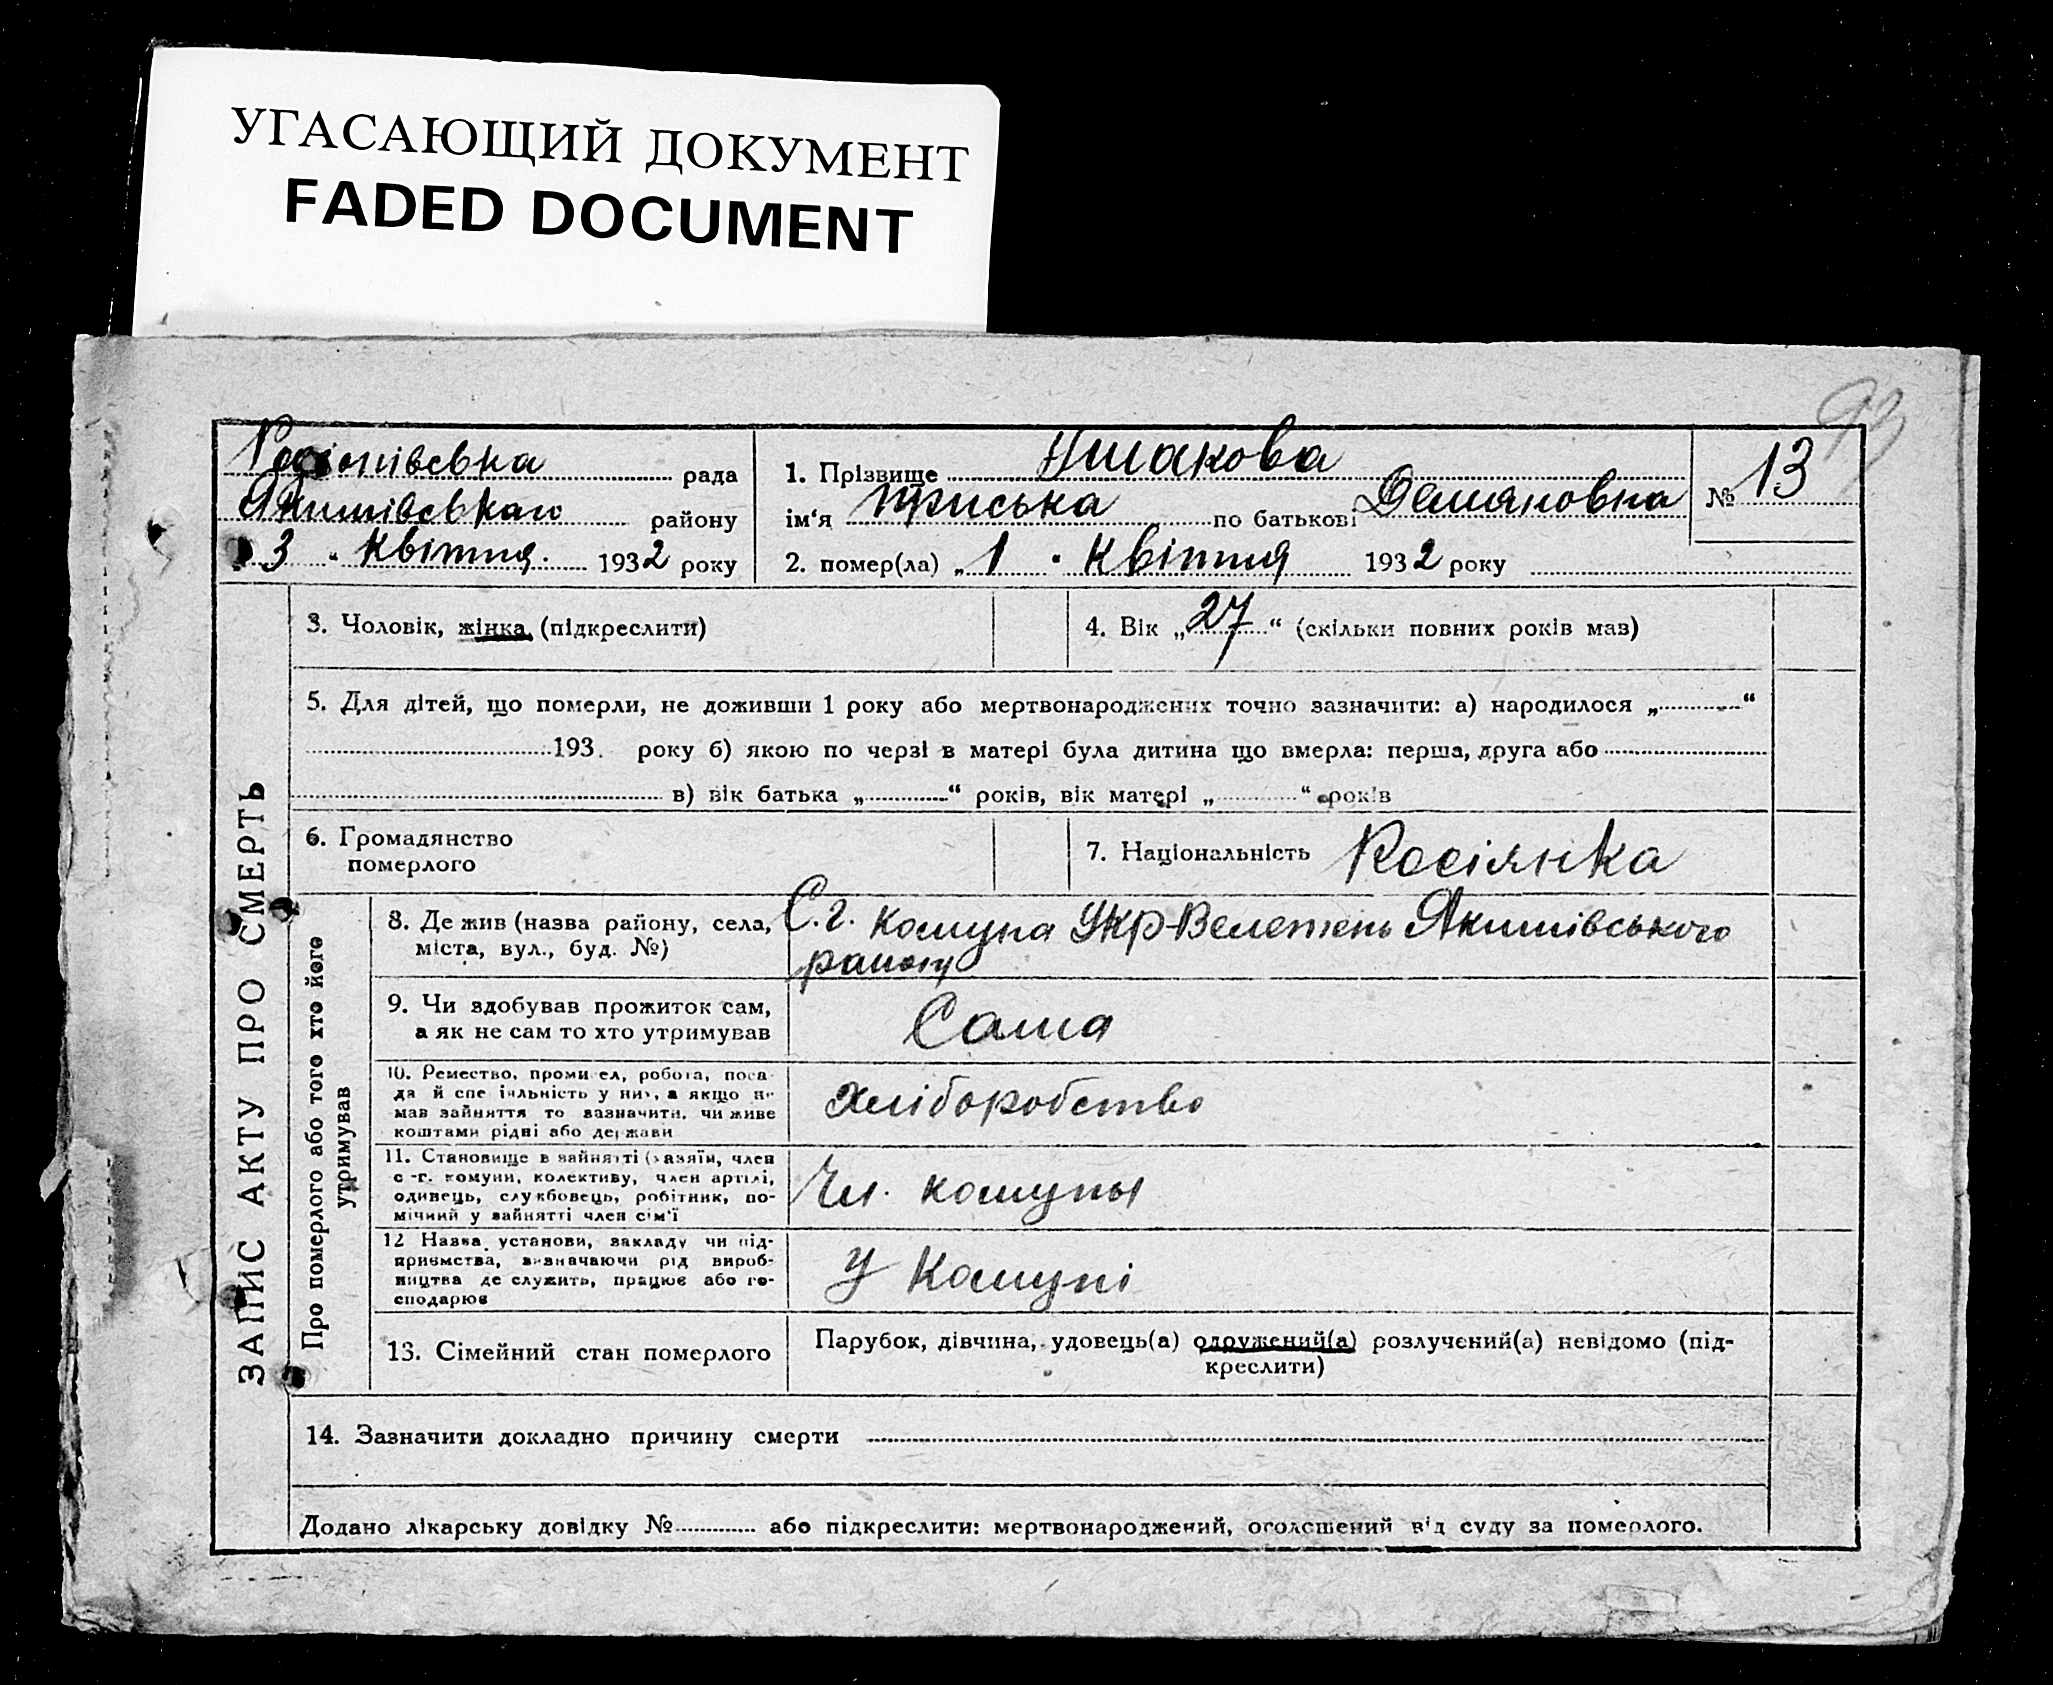 УГАСАЮЩИЙ ДОКУМЕНТ
FADED DOCUMENT
93
Родіонівська рада
Якимівськаго району
"3" квітня 1932 року
1. Прізвище Ушакова
ім'я Приська по батькові Демяновна
№ 13
2. помер(ла) „1" Квітня 1932 року
ЗАПИС АКТУ ПРО СМЕРТЬ
3. Чоловік, жінка (підкреслити)
4. Вік „27" (скільки повних років мав)
5. Для дітей, що померли, не доживши 1 року або мертвонароджених точно зазначити: а) народилося „........"
193 . року б) якою по черзі в матері була дитина що вмерла: перша, друга або
в) вік батька „........" років, вік матері „........" років
6. Громадянство
померлого
7. Національність Росіянка
Про померлого або того хто його
утримував
8. Де жив (назва району, села,
міста, вул., буд. №)
С.г. комуна Укр-Велетень Якимівського
району
9. Чи здобував прожиток сам,
а як не сам то хто утримував
Сама
10. Ремество, промисел, робота, поса-
да й спеціяльність у них, а якщо не
мав зайняття то зазначити, чи живе
коштами рідні або держави
Хліборобство
11. Становище в зайнятті (хазяїн, член
с.-г. комуни, колективу, член артілі,
одинець, службовець, робітник, по-
мічний у зайнятті член сім'ї
Чл. комуны
12 Назва установи, закладу чи під-
приємства, визначаючи рід вироб-
ництва де служить, працює або го-
сподарює
У Комуні
13. Сімейний стан померлого
Парубок, дівчина, удовець(а) одружений(а) розлучений(а) невідомо (під-
креслити)
14. Зазначити докладно причину смерти
Додано лікарську довідку №............ або підкреслити: мертвонароджений, оголошений від суду за померлого.